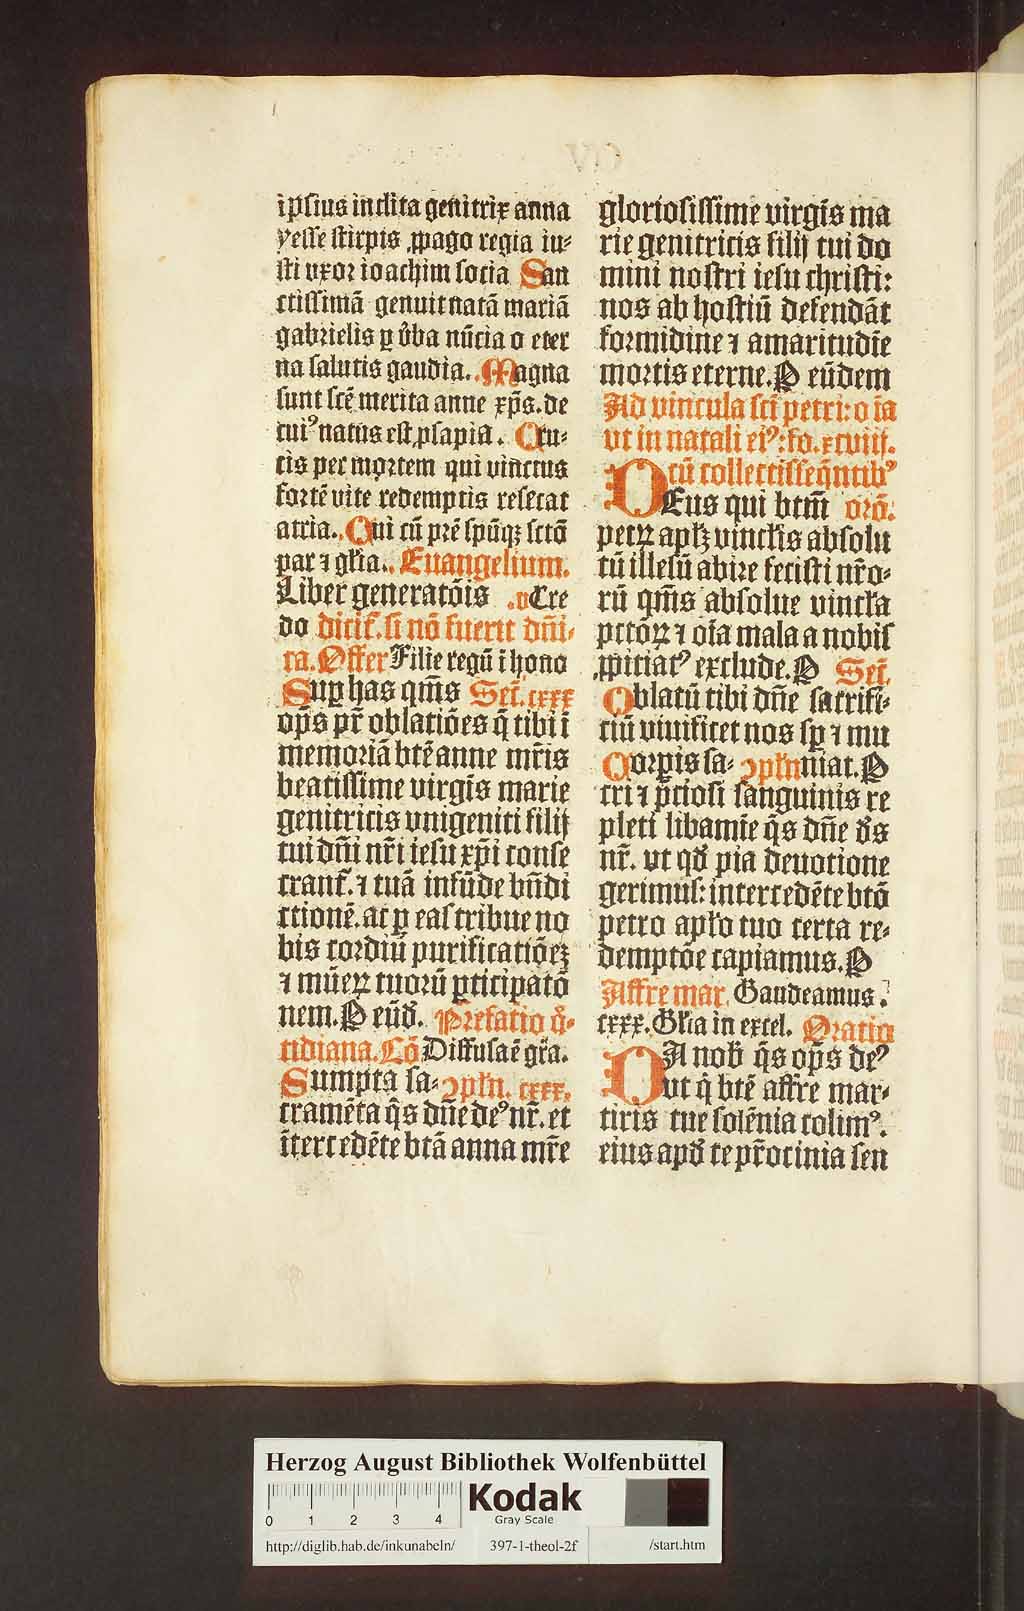 ipsius inclita genitrix anna
yesse stirpis ꝓpago regia iu⸗
sti vxor ioachim socia San
ctissimā genuit natā mariā
gabrielis ꝑ v̓ba nūcia o eter
na salutis gaudia. Magna
sunt scē merita anne xp̄s. de
cuiꝰ natus est ꝓsapia. Cru⸗
cis per mortem qui vinctus
fortē vite redemptis resecat
atria. Qui cū prē spūqꝫ sctō
par ⁊ gl̓ia. Euangelium.
Liber generatōis .v Cre
do dicit᷑. si nō fuerit dn̄i⸗
ca. Offer Filie regū ī hono
Suꝑ has qm̄s Sec̄t. cxxx
op̄s pr̄ oblatiōes q̄ tibi ī
memoriā btē anne mr̄is
beatissime virgīs marie
genitricis vnigeniti filij
tui dn̄i nr̄i iesu xp̄i conse
crant᷑. ⁊ tuā infūde bn̄di
ctionē. ac ꝑ eas tribue no
bis cordiū purificatiōeꝫ
⁊ mūeꝝ tuorū ꝑticipatō
nem. P eūd̓. Prefatio q̊⸗
tidiana. Cō Diffusa ē gr̄a.
Sumpta sa⸗ ꝯpl̄n. cxxx.
cramēta q̄s dn̄e deꝰ nr̄. et
ītercedēte btā anna mr̄e
gloriosissime virgīs ma
rie genitricis filij tui do
mini nostri iesu christi:
nos ab hostiū defendāt
formidine ⁊ amaritudīe
mortis eterne. P eūdem
Ad vincula scī petri: o īa
vt in natali eiꝰ: fo. xcviij.
cū collectis seq̄ntibꝰ
DEus qui btm̄ orō.
petꝝ apl̓ꝫ vincl̓is absolu
tū illesū abire fecisti nr̄o⸗
rū qm̄s absolue vincl̓a
pctōꝝ ⁊ oīa mala a nobis
ꝓpiciatꝰ exclude. P Sec̄t.
Oblatū tibi dn̄e sacrifi⸗
ciū viuificet nos sꝑ ⁊ mu
Corꝑis sa⸗ ꝯpl̄n niat. P
cri ⁊ p̄ciosi sanguinis re
pleti libamīe q̄s dn̄e d̓s
nr̄. vt qd̓ pia deuotione
gerimus: intercedēte btō
petro apl̓o tuo certa re⸗
demptōe capiamus. P
Affre mar. Gaudeamus.
cxxx. Gl̓ia in excel. Oratio
DA nob̓ q̄s op̄s deꝰ
vt q̓ btē affre mar⸗
tiris tue solēnia colimꝰ.
eius apd̓ te pr̄ocinia sen
Herzog August Bibliothek Wolfenbüttel
0 1 2 3 4
Kodak
Gray Scale
http://diglib.hab.de/inkunabeln/ 397-1-theol-2f /start.htm